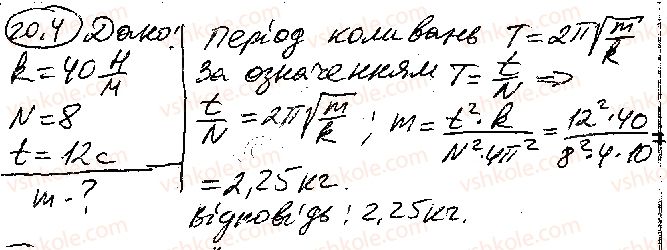 20.4 Дано:
k = 40 Н/м
N = 8
t = 12 с
m - ?
Період коливань T = 2π√(m/k)
За означенням T = t/N ⇒
t/N = 2π√(m/k) ; m = (t² · k)/(N² · 4π²) = (12² · 40)/(8² · 4 · 10) =
= 2,25 кг.
Відповідь: 2,25 кг.